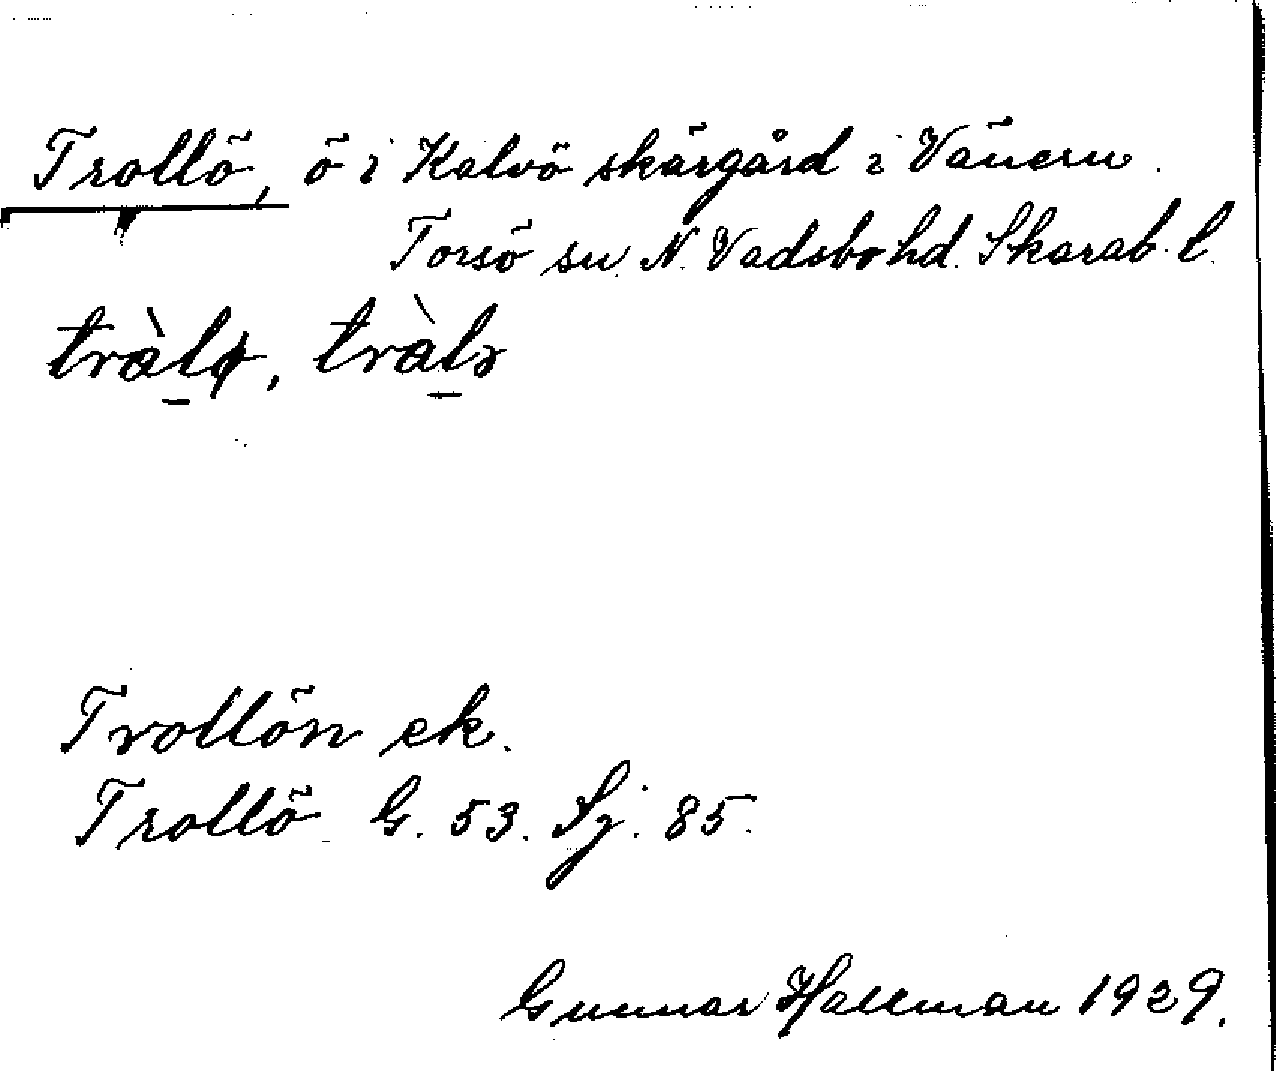 Trollö, ö i Kalvö skärgård i Vänern.
Torsö sn. N. Vadsbo hd. Skarab. l.
tràlø, tràlɤ
Trollön ek.
Trollö G. 53. Sj. 85.
Gunnar Hallman 1929.